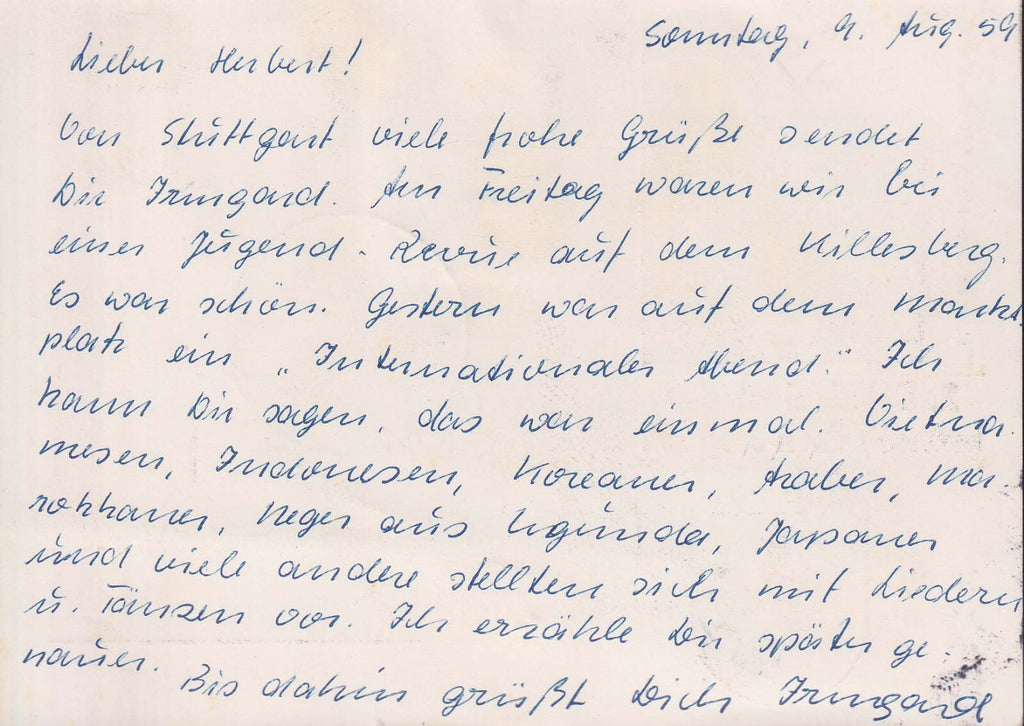 Sonntag, 9. Aug. 59
Lieber Herbert!
Von Stuttgart viele frohe Grüße sendet
Dir Irmgard. Am Freitag waren wir bei
einer Jugend-Revue auf dem Killesberg.
Es war schön. Gestern war auf dem Markt
platz ein „Internationaler Abend." Ich
kann Dir sagen, das war einmal. Vietna-
mesen, Indonesen, Koreaner, Araber, Ma-
rokkaner, Neger aus Uganda, Japaner
und viele andere stellten sich mit Liedern
u. Tänzen vor. Ich erzähle Dir später ge-
nauer.
Bis dahin grüßt Dich Irmgard